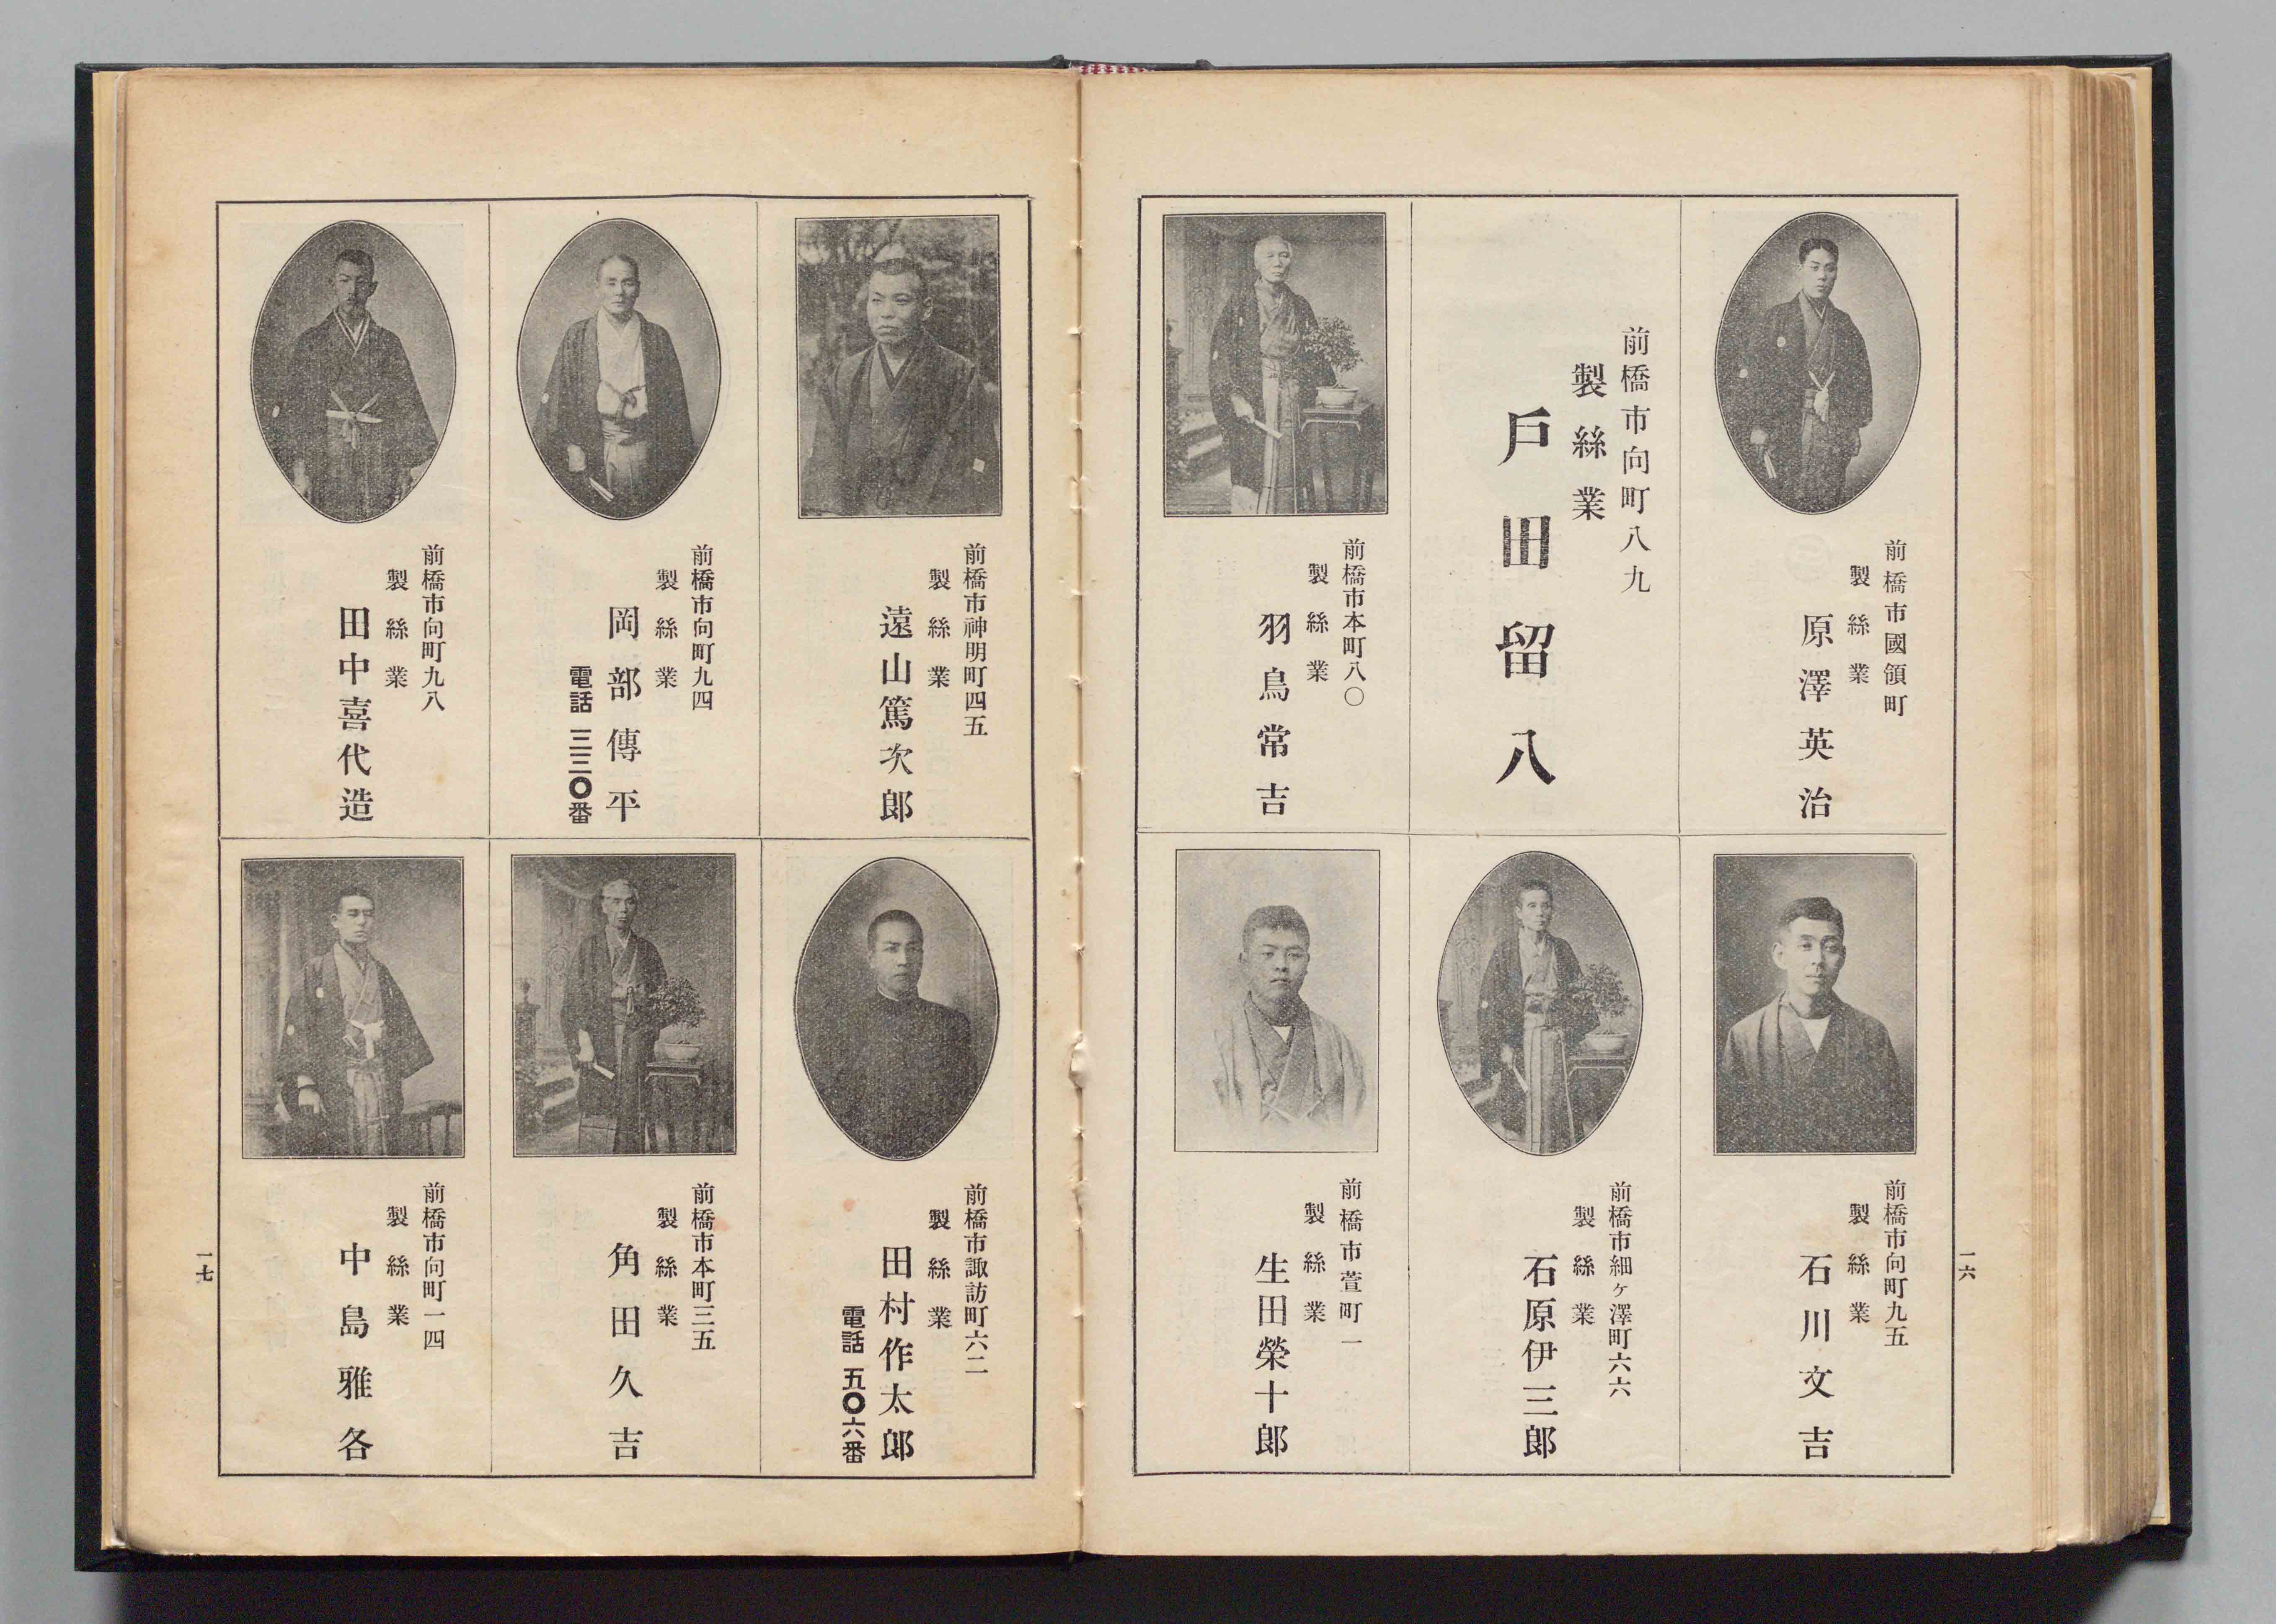 前橋市國領町
製絲業
原澤英治
前橋市向町八九
製絲業
戶田留八
前橋市本町八〇
製絲業
羽鳥常吉
前橋市向町九五
製絲業
石川文吉
前橋市細ヶ澤町六六
製絲業
石原伊三郎
前橋市萱町一
製絲業
生田榮十郎
一六
前橋市神明町四五
製絲業
遠山篤次郎
前橋市向町九四
製絲業
岡部傳平
電話 三三〇番
前橋市向町九八
製絲業
田中喜代造
前橋市諏訪町六二
製絲業
田村作太郎
電話 五〇六番
前橋市本町三五
製絲業
角田久吉
前橋市向町一四
製絲業
中島雅各
一七